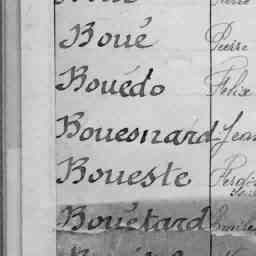 Boué Pierre
Bouëdo Félix
Bouesnard Jean
Boueste
Bouëtard Emile